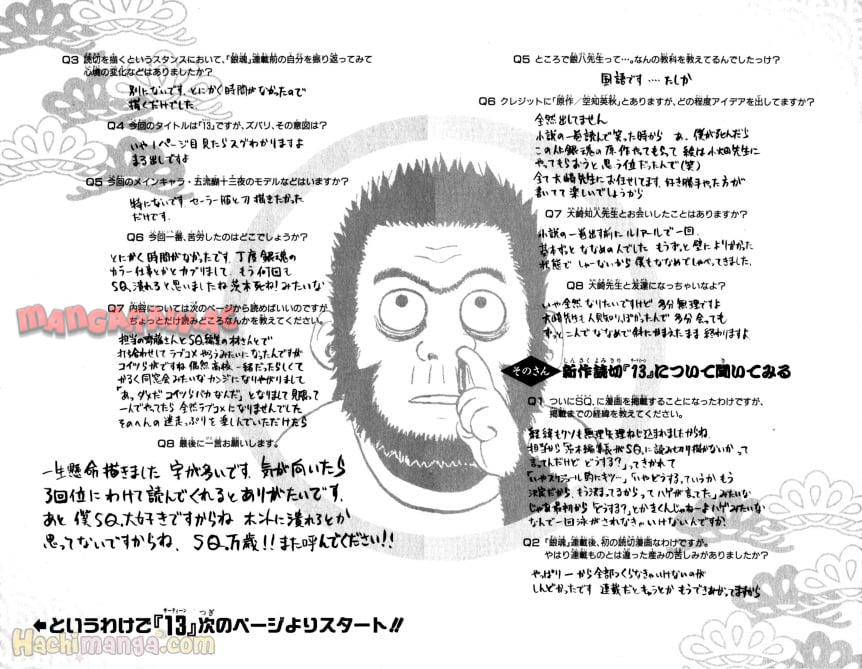 Q5 ところで銀八先生って…。なんの教科を教えてるんでしたっけ？
国語です‥‥たしか
Q6 クレジットに「原作／空知英秋」とありますが、どの程度アイデアを出してますか？
全然出してません
小説の一巻読んで笑った時から あ、僕が死んだら
この人銀魂の原作やてもらって 絵は小畑先生に
やってもらおうと思う位だったんで(笑)
全て大崎先生にお任せしてます 好き勝手やった方が
書いてて楽しいでしょうから
Q7 大崎知仁先生とお会いしたことはありますか？
小説の一巻出す前にルノアールで一回.
基本ずっとななめの人でした もうずっと壁によりかかった
状態で しゃーないから僕もななめでしゃべってきました.
Q8 大崎先生と友達になっちゃいなよ？
いや全然なりたいですけど 多分無理ですよ
大崎先生も人見知りっぽかったんで 多分会っても
ずっと二人でななめで斜たがまえたまま終わりますよ
そのさん 新作読切『13』について聞いてみる
しんさくよみきり サーティーン き
Q1 ついにSQ.に漫画を掲載することになったわけですが、
掲載までの経緯を教えてください。
経緯もクソも無理矢理ねじ込まれましたからね.
担当から「茨木編集長がSQ.に読み切り描かないかって
言ってんだけど どうする?」ってきかれて
「いやスケジュール的にキツ…」「いやどうする、ていうか もう
決定だから. もう決まってるからってハゲが言ってた」みたいな
じゃあ最初から「どうする?」とかきくんじゃねーよハゲみたいな
なんで一回泳がされなきゃいけないんですか!
Q2 「銀魂」連載後、初の読切漫画なわけですが。
やはり連載ものとは違った産みの苦しみがありましたか？
やっぱり一から全部つくらなきゃいけないのが
しんどかったです 連載だとキャラとか もうできあがってますから
Q3 読切を描くというスタンスにおいて、「銀魂」連載前の自分を振り返ってみて
心境の変化などはありましたか？
別にないです. とにかく時間がなかったので
描くだけでした.
Q4 今回のタイトルは「13」ですが、ズバリ、その意図は？
いや1ページ目見たらスグわかりますよ
まる出しですよ
Q5 今回のメインキャラ・五流麟十三夜のモデルなどはいますか？
特にないです. セーラー服と刀描きたかった
だけです.
Q6 今回一番、苦労したのはどこでしょうか？
とにかく時間がなかったです. 丁度銀魂の
カラー仕事とかとカブりまして、もう何回も
SQ.潰れろと思いましたね 茨木死ね!みたいな
Q7 内容については次のページから読めばいいのですが、
ちょっとだけ読みどころなんかを教えてください。
担当の齊藤さんとSQ.編集の林さんとで
打ち合わせしてラブコメやろうみたいになったんですが
コイツらがですね 偶然高校一緒だったらしくて
かるく同窓会みたいなカンジになりやがりまして
「あっダメだコイツらバカなんだ」となりまして見限って
一人でやってたら 全然ラブコメになりませんでした
そのへんの迷走っぷりを楽しんでいただけたら
Q8 最後に一言お願いします。
一生懸命描きました 字が多いです. 気が向いたら
3回位にわけて読んでくれるとありがたいです.
あと僕SQ.大好きですからね ホントに潰れろとか
思ってないですからね、SQ.万歳!!また呼んでください!!
というわけで『13』次のページよりスタート!!
サーティーン つぎ
Hachimanga.com